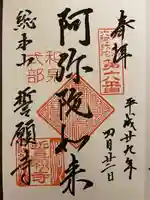 奉拝
平成廿九年
四月廿二日
阿弥陀如来
和泉
式部
総本山
誓願寺